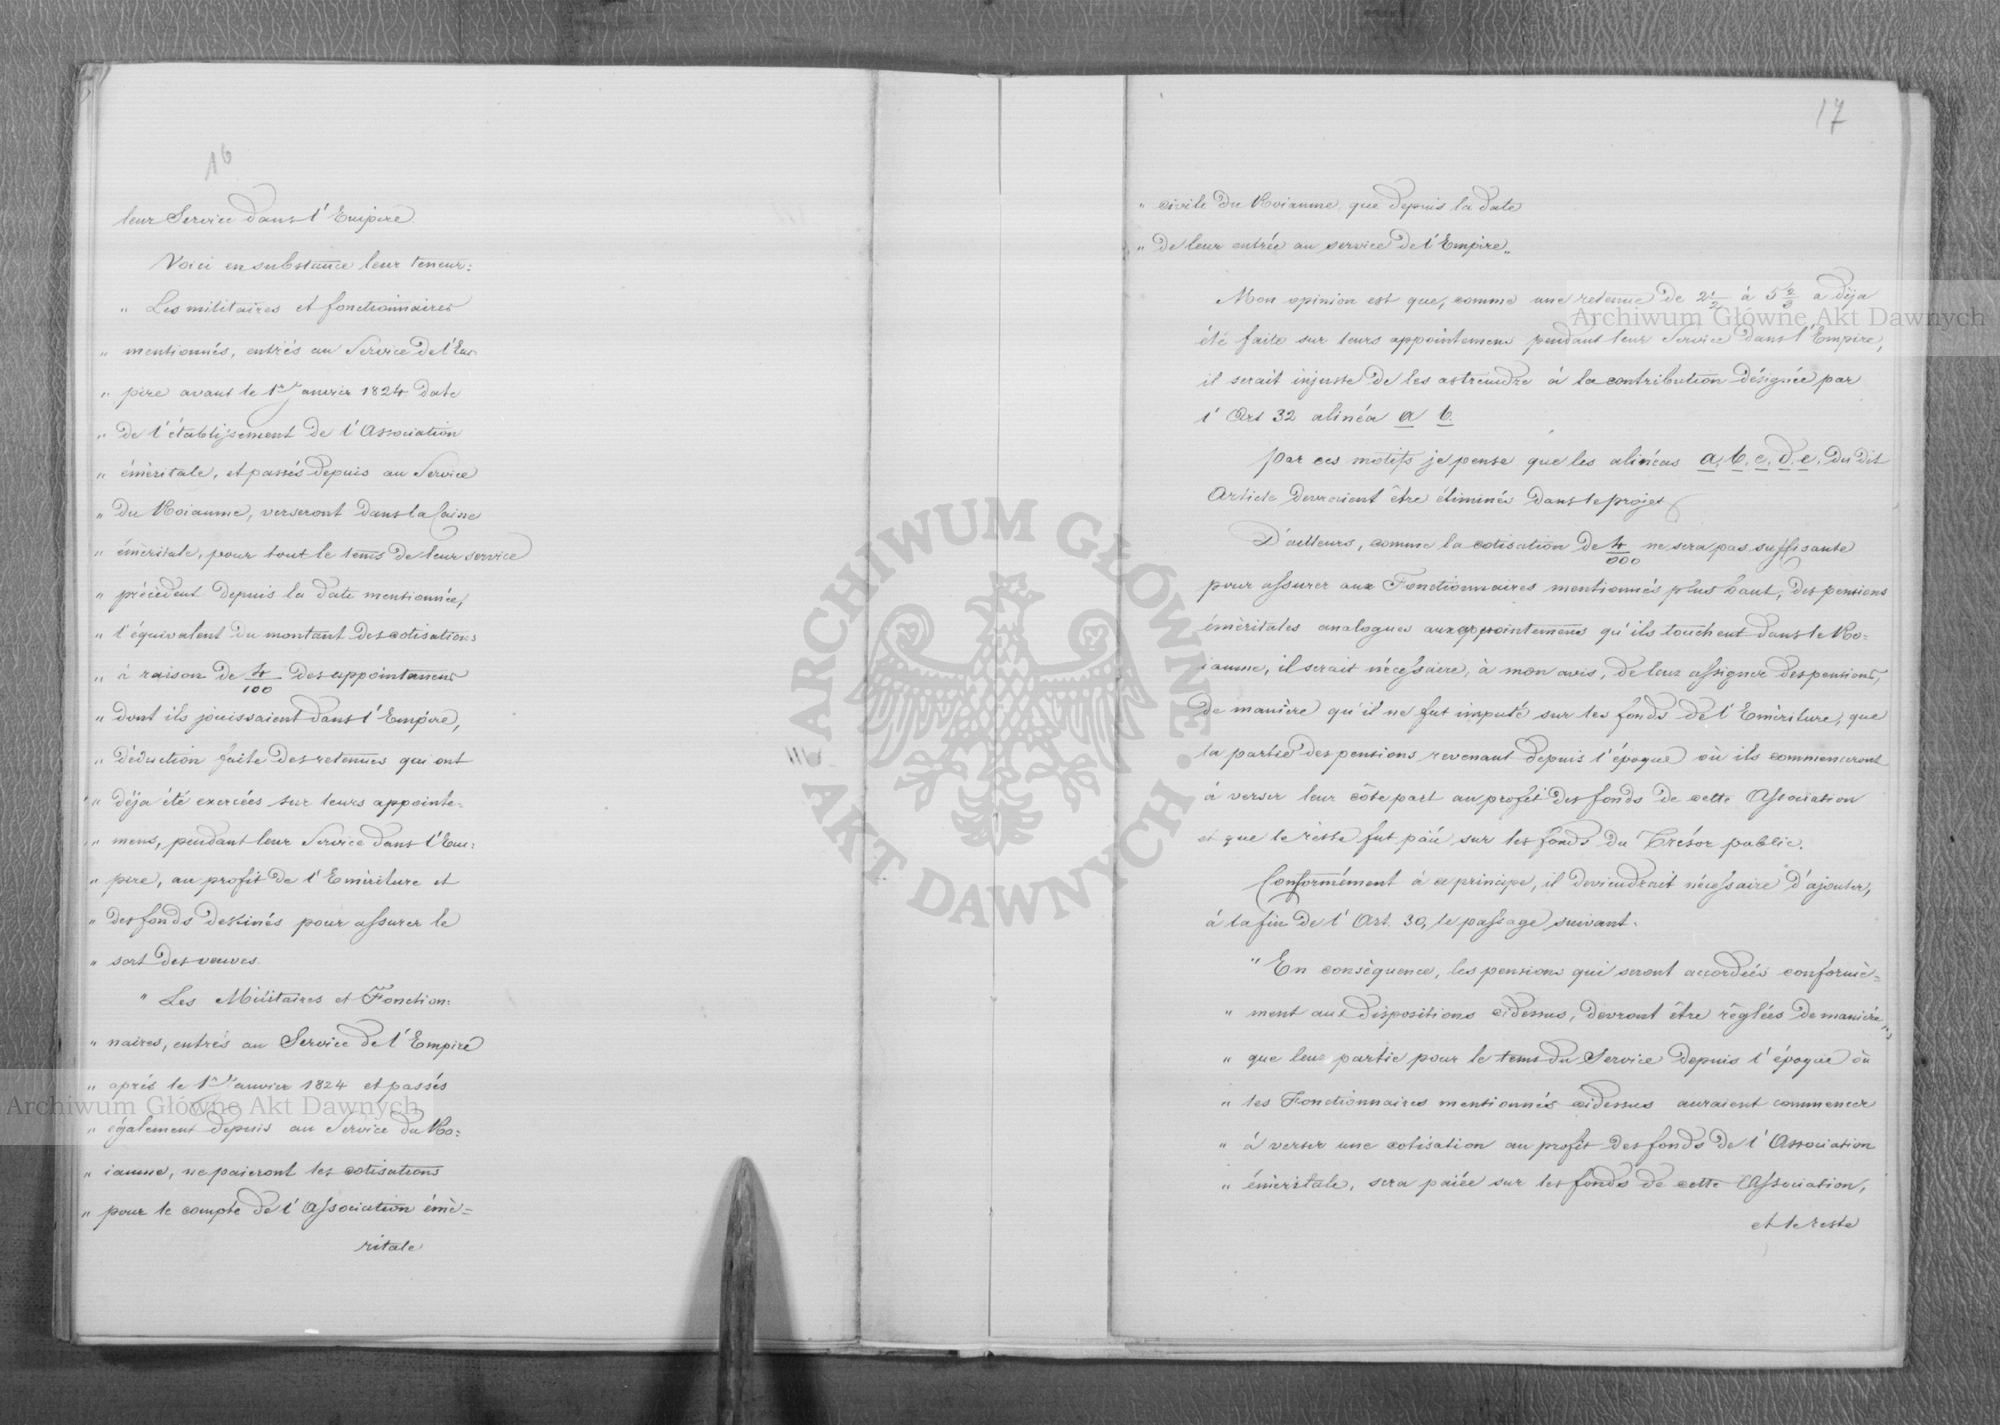 16
leur Service dans l'Empire.
Voici en substance leur teneur:
„ Les militaires et fonctionnaires
„ mentionnés, entrés au Service de l'Em-
„ pire avant le 1er Janvier 1824 date
„ de l'établissement de l'Association
„ éméritale, et passés depuis au Service
„ du Roiaume, verseront dans la Caisse
„ éméritale, pour tout le tems de leur service
„ précédent depuis la date mentionnée,
„ l'équivalent du montant des cotisations
„ à raison de 4/100 des appointemens
„ dont ils jouissaient dans l'Empire,
„ déduction faite des retenues qui ont
„ déja été exercées sur leurs appointe-
„ mens, pendant leur Service dans l'Em:
„ pire, au profit de l'Emériture et
„ des fonds destinés pour assurer le
„ sort des veuves.
„ Les Militaires et Fonction:
„ naires, entrés au Service de l'Empire
„ après le 1er Janvier 1824 et passés
„ également depuis au Service du Ro:
„ iaume, ne paieront les cotisations
„ pour le compte de l'Association émé-
ritale
17
„ civile du Roiaume, que depuis la date
„ de leur entrée au service de l'Empire„
Mon opinion est que, comme une retenue de 2 1/2 à 5 2/3 a déja
été faite sur leurs appointemens pendant leur Service dans l'Empire,
il serait injuste de les astreindre à la contribution désignée par
l'Art 32 alinéa a b.
Par ces motifs je pense que les alinéas a, b, c, d, e, du dit
Article devraient être éliminés dans le projet
D'ailleurs, comme la cotisation de 4/000 ne sera pas suffisante
pour assurer aux Fonctionnaires mentionnés plus haut, des pensions
éméritales analogues aux appointemens qu'ils touchent dans le Ro:
iaume, il serait nécessaire, à mon avis, de leur assigner des pensions,
de manière qu'il ne fut imputé sur les fonds de l'Emériture, que
la partie des pensions revenant depuis l'époque où ils commenceront
à verser leur côte part au profit des fonds de cette Association
et que le reste fut paié sur les fonds du Trésor public.
Conformément à ce principe, il deviendrait nécessaire d'ajouter,
à la fin de l'Art. 30, le passage suivant.
„ En conséquence, les pensions qui seront accordées conformé-
„ ment aux dispositions cidessus, devront être réglées de manière
„ que leur partie pour le tems du Service depuis l'époque où
„ les Fonctionnaires mentionnés cidessus auraient commencer
„ à verser une cotisation au profit des fonds de l'Association
„ éméritale, sera paiée sur les fonds de cette Association,
et le reste
ARCHIWUM GŁÓWNE AKT DAWNYCH
Archiwum Główne Akt Dawnych
Archiwum Główne Akt Dawnych